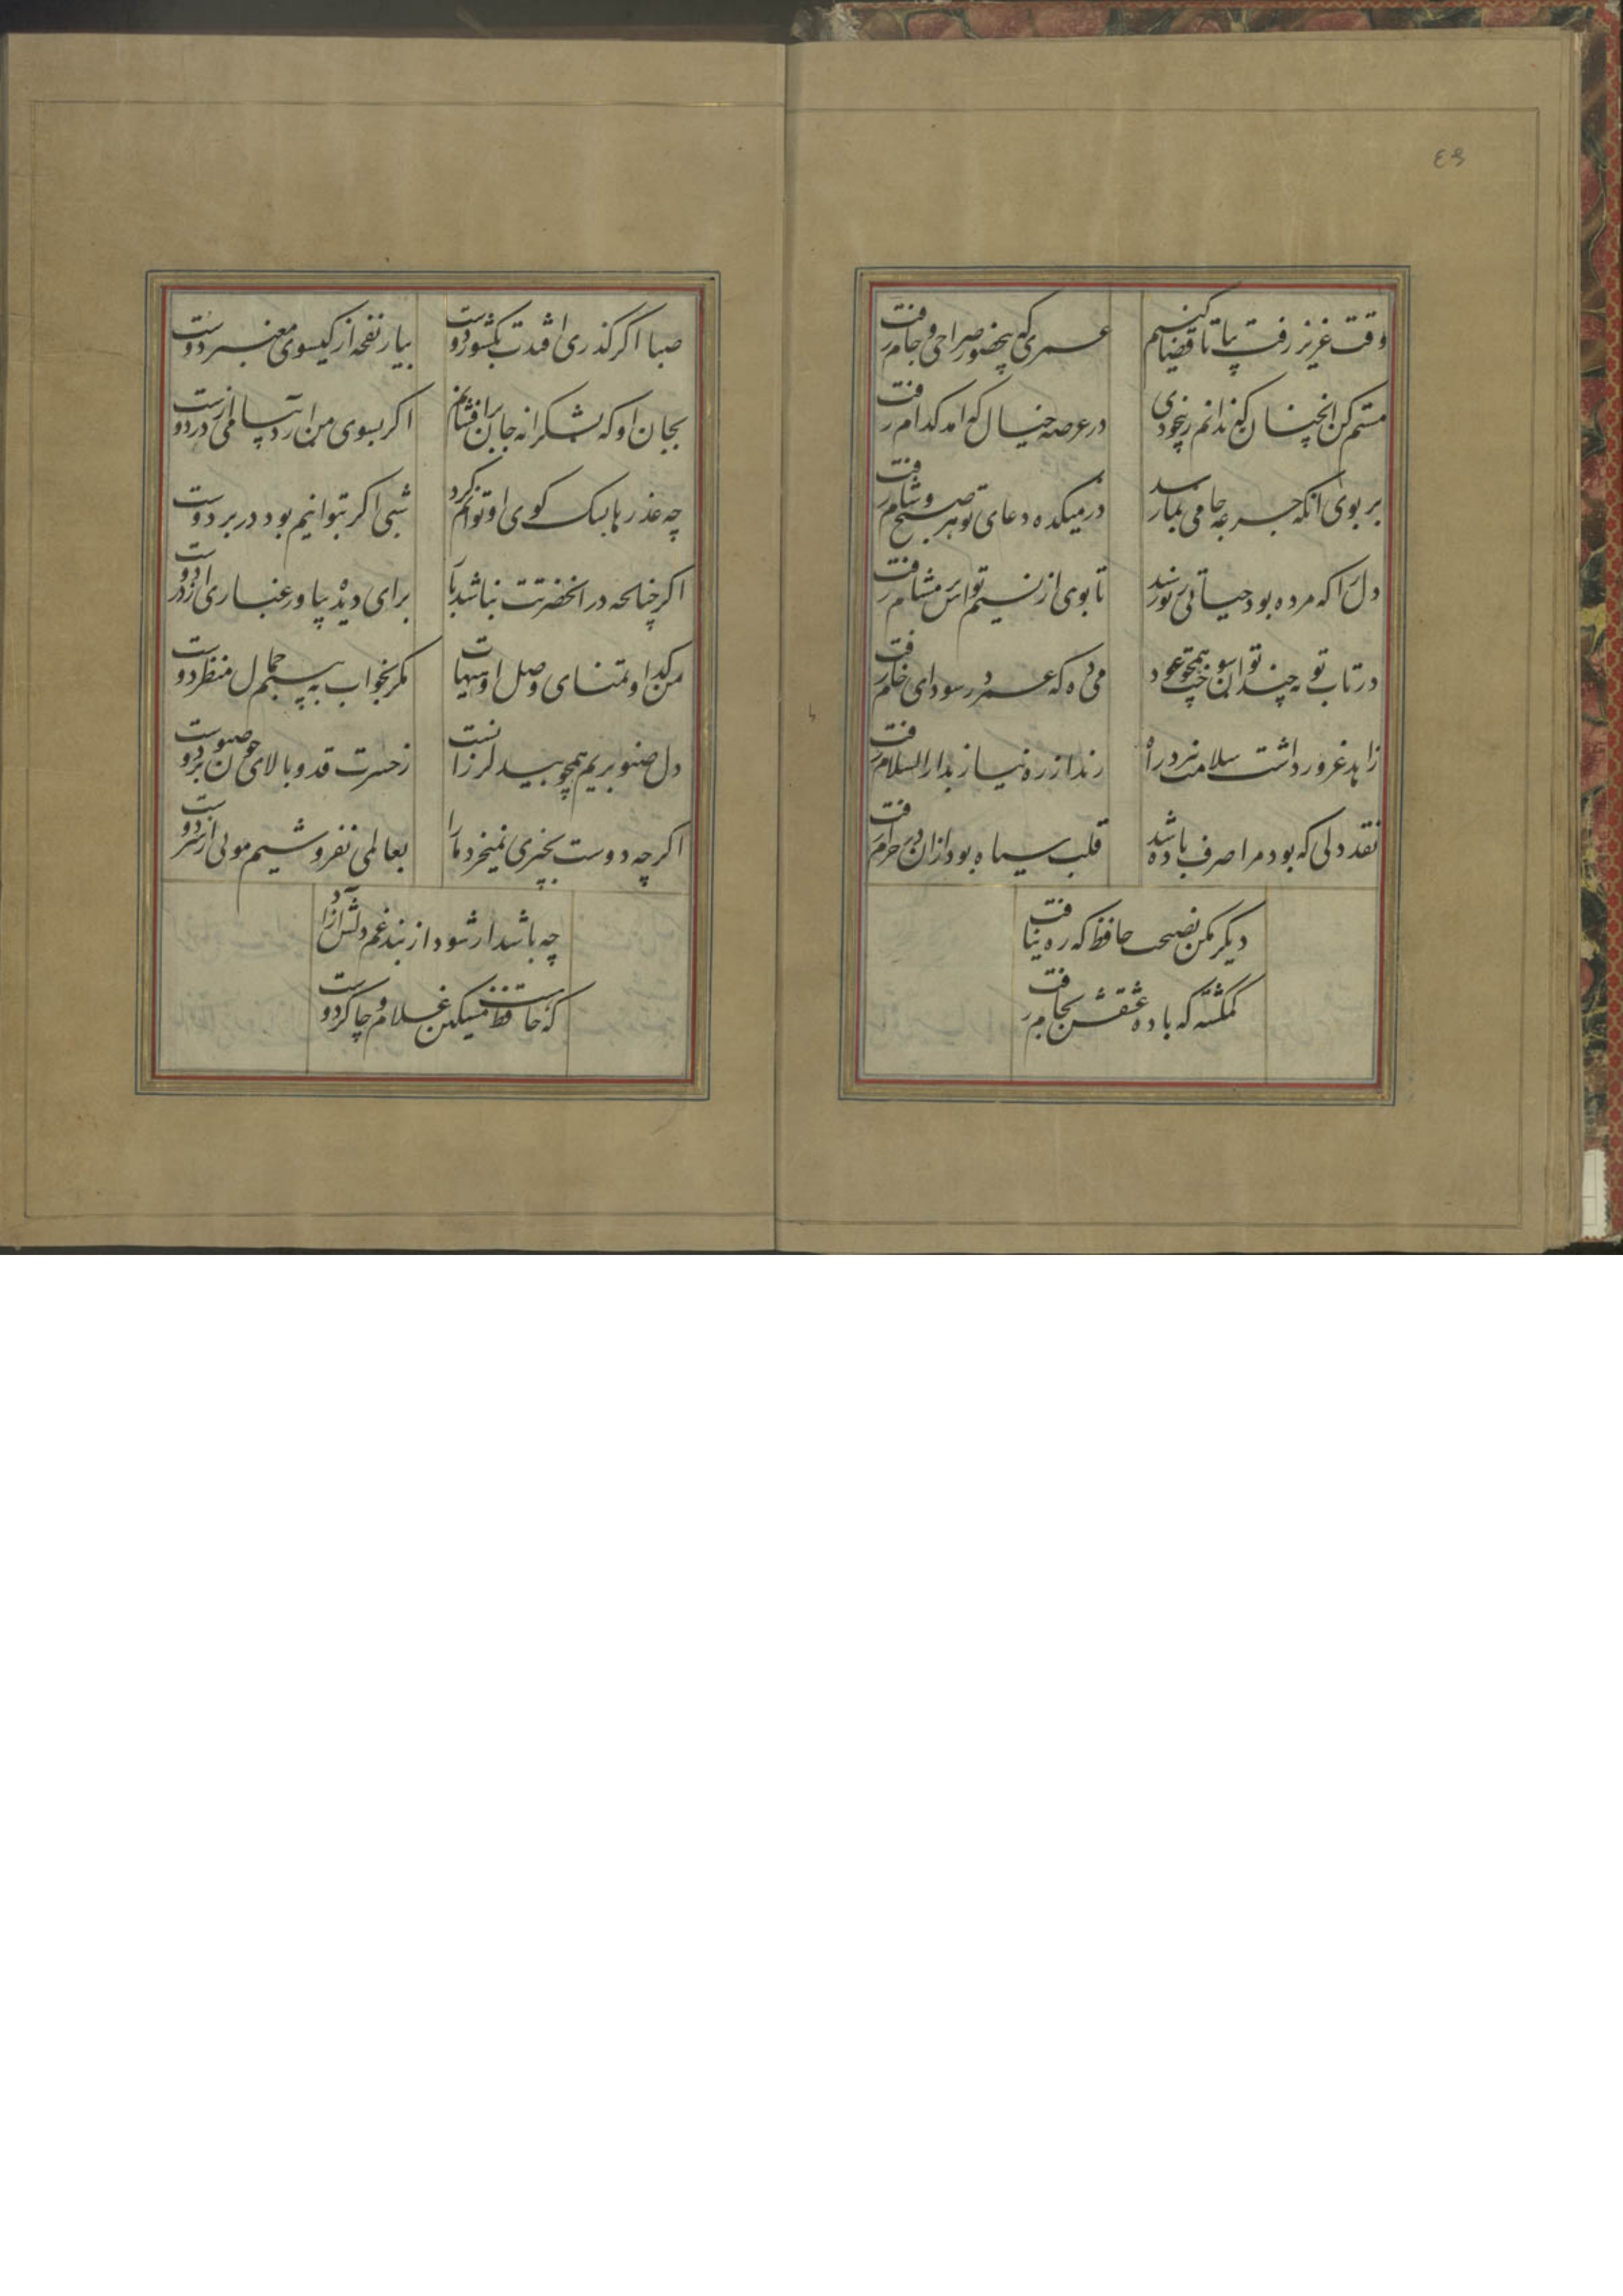 ٤٩
وقت عزیز رفت بیا تا قضا کنیم
عمری که بیحضور صراحی و جام رفت
مستم کن انچنان که ندانم ز بیخودی
در عرصه خیال که امد کدام رفت
بر بوی انکه جرعه جامی بما رسد
در میکده دعای تو هر صبح و شام رفت
دل را که مرده بود حیاتی ز نو رسید
تا بوی از نسیم تواش در مشام رفت
در تاب توبه چند توان سوخت همچو عود
می ده که عمر در سودای خام رفت
زاهد غرور داشت سلامت نبرد راه
رند از ره نیاز بدار السلام رفت
نقد دلی که بود مرا صرف باده شد
قلب سیاه بود ازان در حرام رفت
دیکر مکن نصیحت حافظ که ره نیافت
کمکشته که باده عشقش بجام رفت
صبا اکر کذری افتدت بکشور دوست
بیار نفحه از کیسوی معنبر دوست
بجان او که بشکرانه جان برافشانم
اکر بسوی من اری پیامی از در دوست
چه عذرها بسک کوی او توانم کرد
شبی اکر بتوانیم بود در بر دوست
اکر چنانچه در انحضرتت نباشد بار
برای دیده بیاور غباری از در دوست
من کدا و تمنای وصل او هیهات
مکر بخواب به بینم جمال منظر دوست
دل صنوبریم همچو بید لرزانست
ز حسرت قد و بالای چون صنوبر دوست
اکر چه دوست بچیزی نمیخرد ما را
بعالمی نفروشیم مویی از سر دوست
چه باشد ار شود از بند غم دلش ازاد
که حافظ مسکین غلام و چاکر دوست